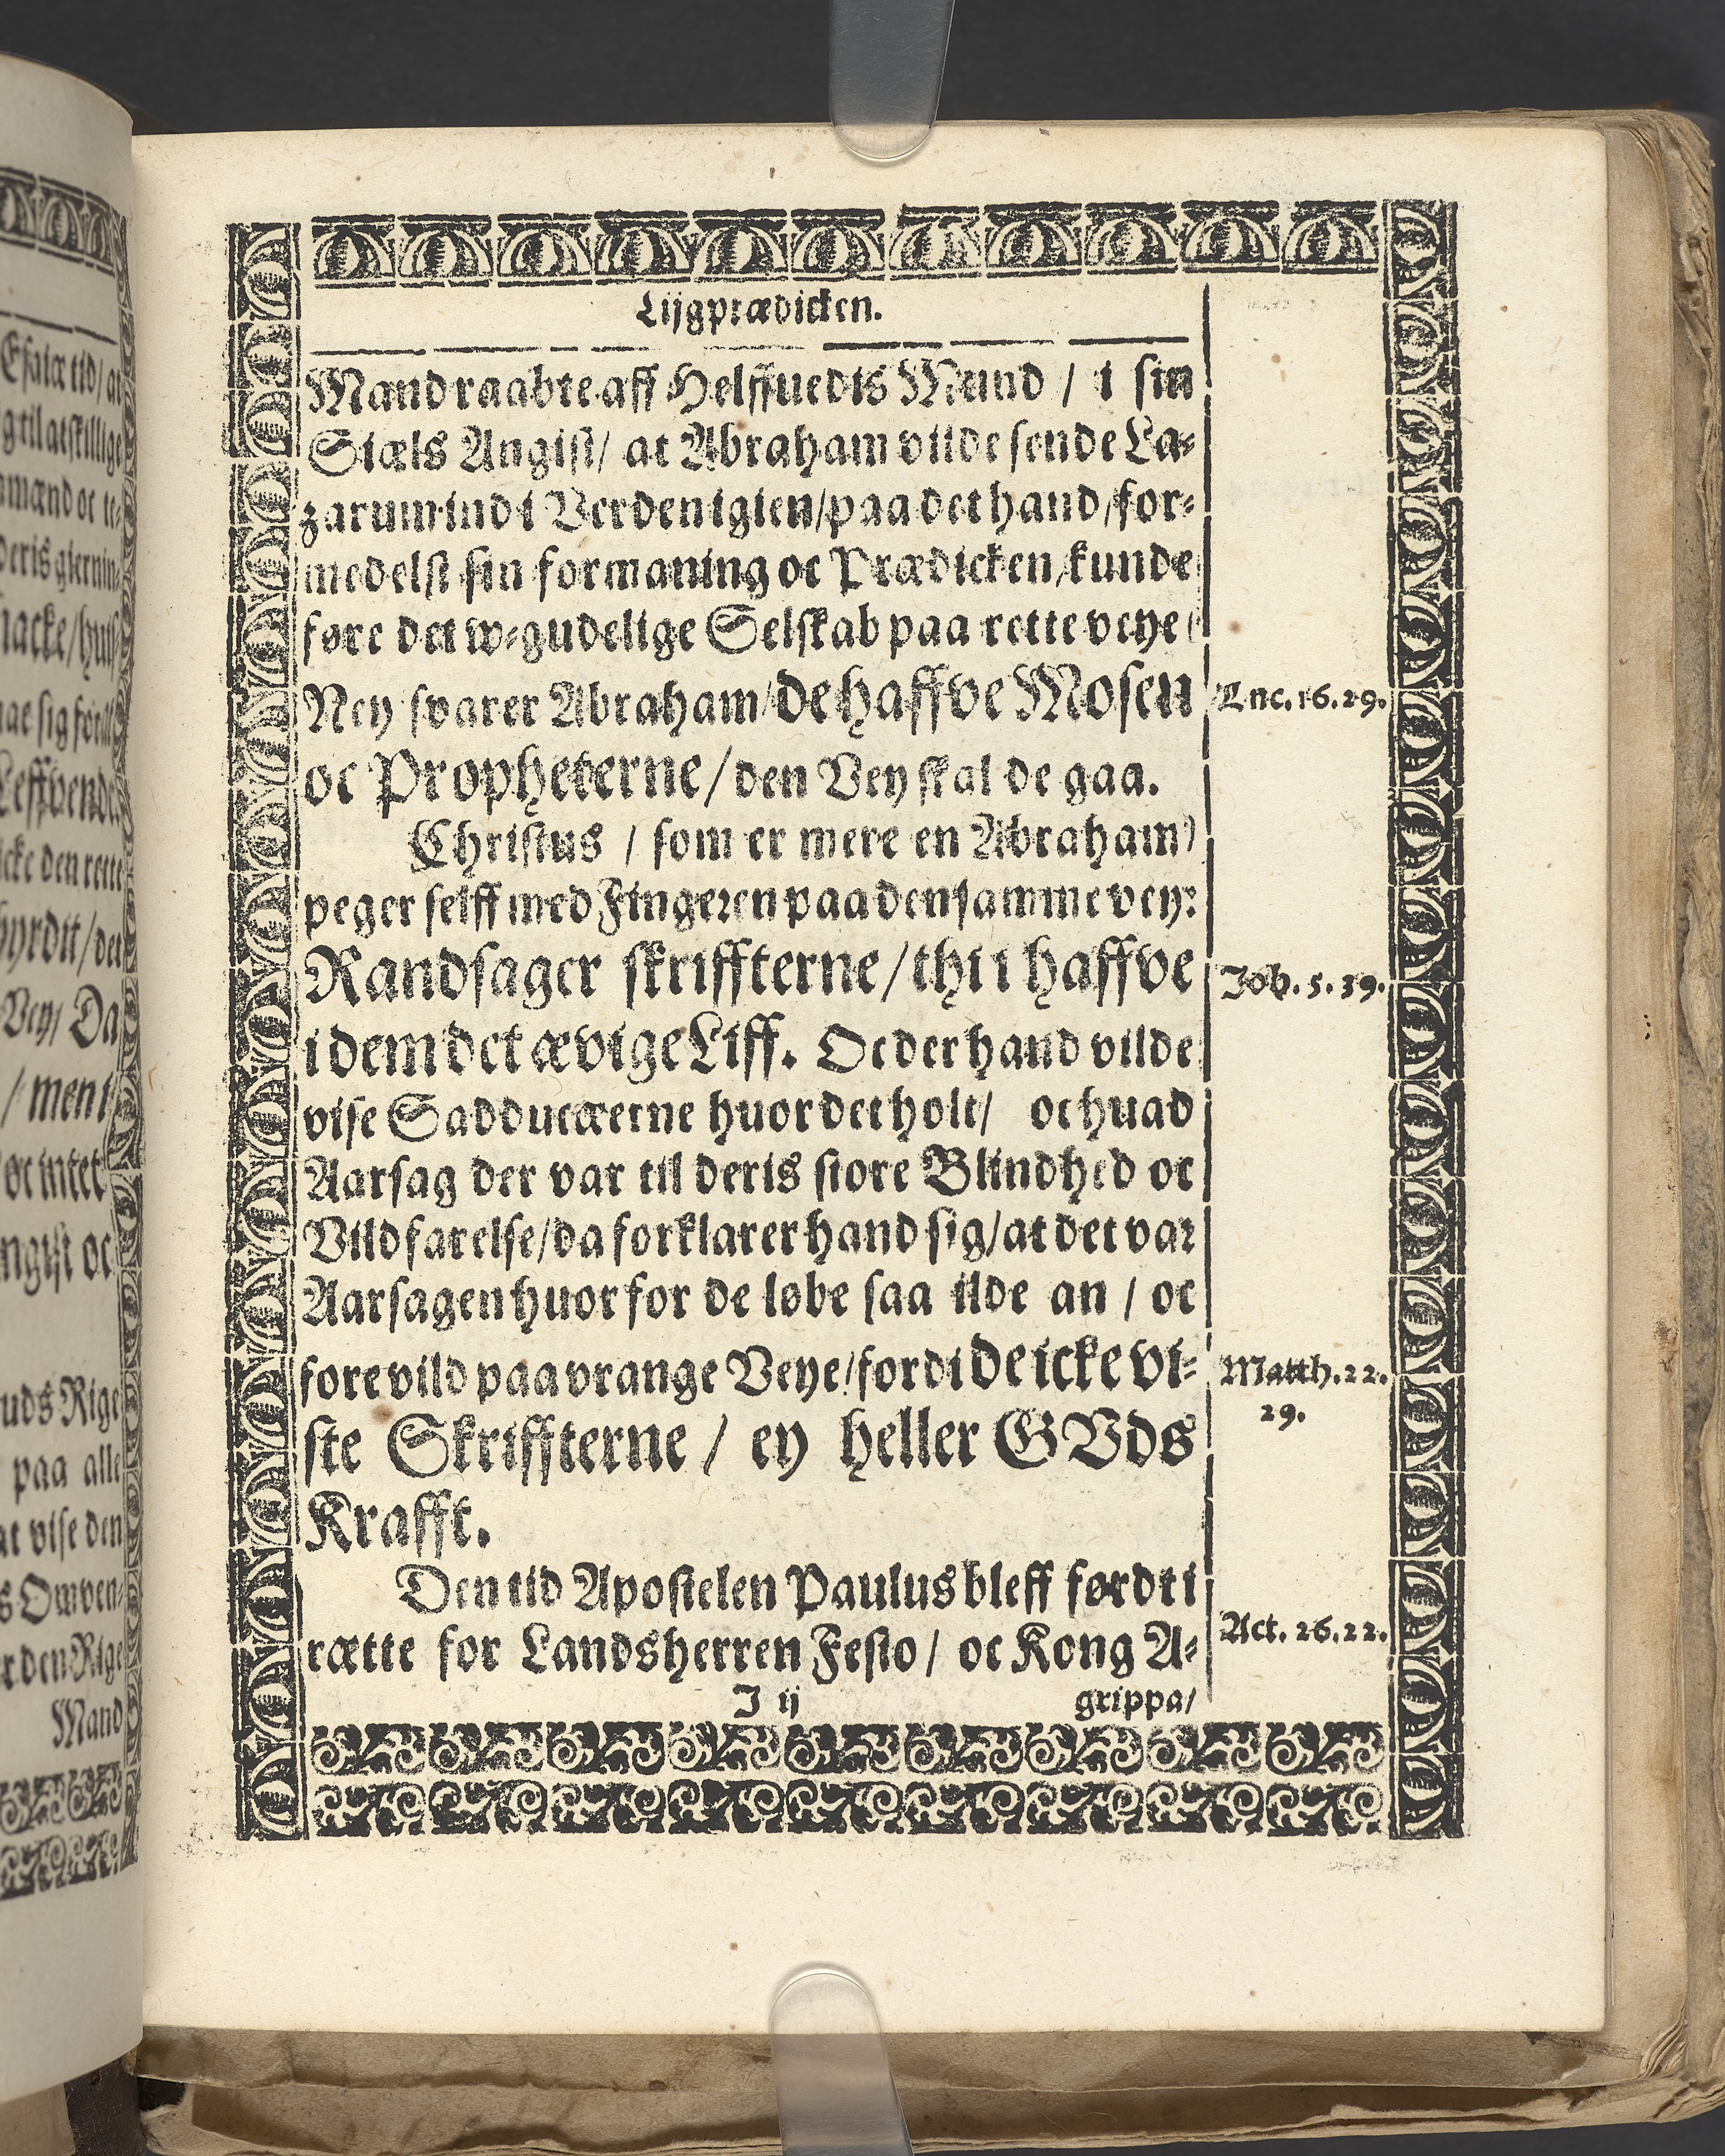 Lijgprædicken.
Mand raabte aff Helffuedis Mund / i sin
Siæls Angist / at Abraham vilde sende La-
zarum ind i Verden igien / paa det hand / for-
medelst sin formaning oc Prædicken / kunde
føre det w-gudelige Selskab paa rette veye /
Ney svarer Abraham / de haffve Mosen
oc Propheterne / den Vey skal de gaa.
Christus / som er mere en Abraham /
peger selff med Fingeren paa den samme vey:
Randsager skriffterne / thi i haffve
i dem det ævige Liff. Oc der hand vilde
vise Sadducæerne huor det holt / oc huad
Aarsag der var til deris store Blindhed oc
Vildfarelse / da forklarer hand sig / at det var
Aarsagen huor for de løbe saa ilde an / oc
fore vild paa vrange Veye / fordi de icke vi-
ste Skriffterne / ey heller GVds
Krafft.
Den tid Apostelen Paulus bleff førdt i
rætte for Landsherren Festo / oc Kong A-
J ij
grippa /
Luc. 16. 29.
Joh. 5. 39.
Matth. 22.
29.
Act. 26. 22.
Esaiæ tid / at
Leffvende
icke den rette
Vey / Da
/ men i
oc intet
uds Rige
paa alle
at vise den
s Omven-
Mand